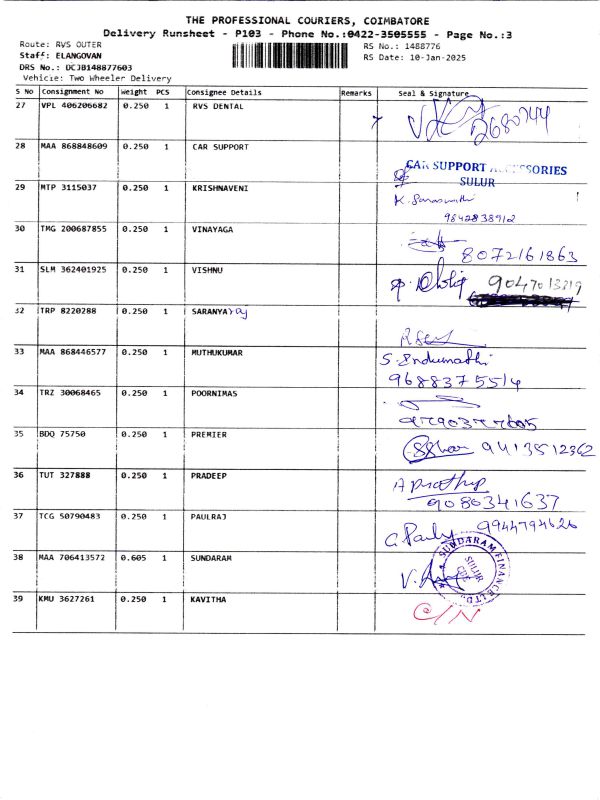 THE PROFESSIONAL COURIERS, COIMBATORE
Delivery Runsheet - P103 - Phone No.:0422-3505555 - Page No.:3
Route: RVS OUTER RS No.: 1488776
Staff: ELANGOVAN RS Date: 10-Jan-2025
DRS No.: DCJB148877603
Vehicle: Two Wheeler Delivery
S No Consignment No Weight PCS Consignee Details Remarks Seal & Signature
27 VPL 406206682 0.250 1 RVS DENTAL
28 MAA 868848609 0.250 1 CAR SUPPORT
CAR SUPPORT ACCESSORIES
SULUR
29 MTP 3115037 0.250 1 KRISHNAVENI
K. Saraswathi
9842838912
30 TMG 200687855 0.250 1 VINAYAGA
8072161863
31 SLM 362401925 0.250 1 VISHNU
32 TRP 8220288 0.250 1 SARANYA
33 MAA 868446577 0.250 1 MUTHUKUMAR S. Indumathi
9688375514
34 TRZ 30068465 0.250 1 POORNIMAS
35 BDQ 75750 0.250 1 PREMIER 9413512362
36 TUT 327888 0.250 1 PRADEEP
9080341637
37 TCG 50790483 0.250 1 PAULRAJ 9944794626
38 MAA 706413572 0.605 1 SUNDARAM SUNDARAM FINANCE LTD.
SULUR
39 KMU 3627261 0.250 1 KAVITHA C/N